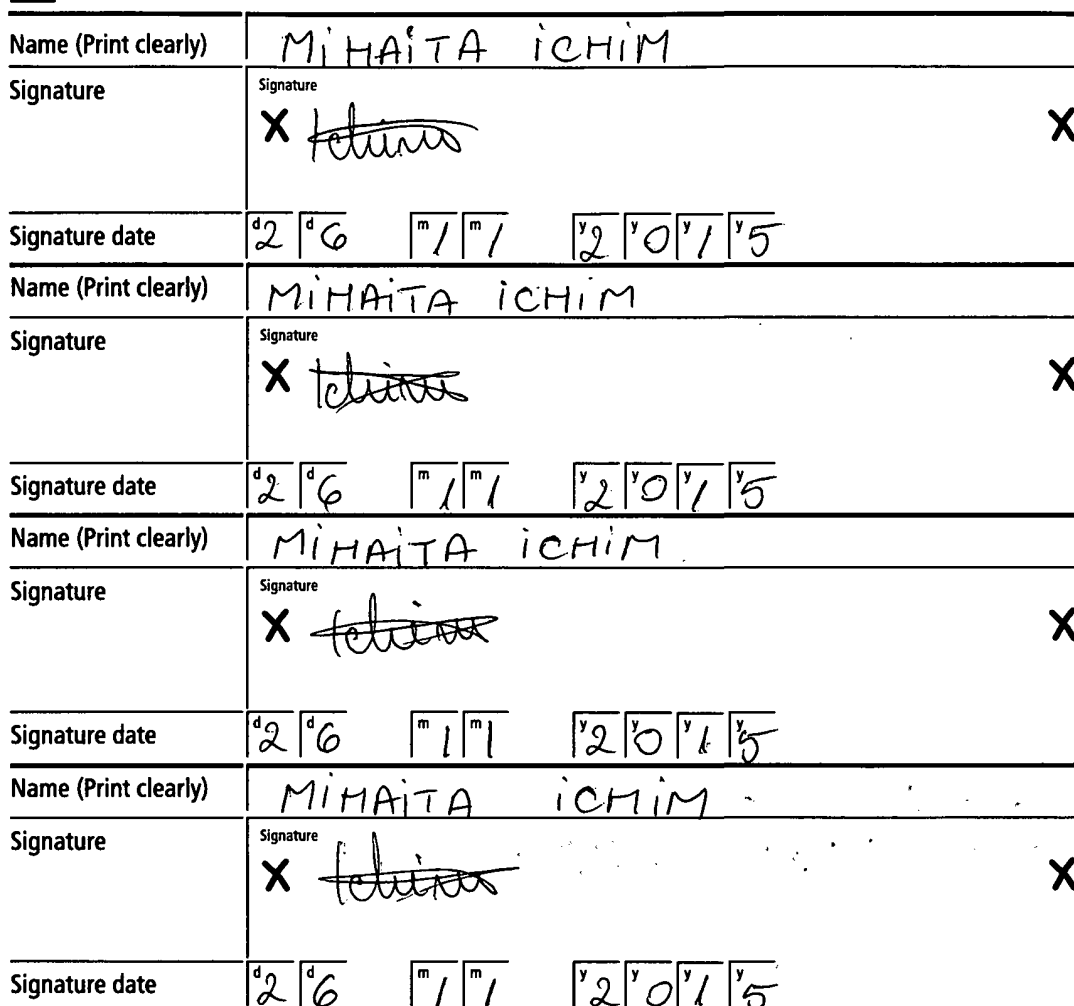 Name (Print clearly) MiHAiTA iCHiM
Signature Signature
X Ichim X
Signature date d2 d6 m1 m1 y2 y0 y1 y5
Name (Print clearly) MiHAiTA iCHiM
Signature Signature
X Ichim X
Signature date d2 d6 m1 m1 y2 y0 y1 y5
Name (Print clearly) MiHAiTA iCHiM
Signature Signature
X Ichim X
Signature date d2 d6 m1 m1 y2 y0 y1 y5
Name (Print clearly) MiHAiTA iCHiM
Signature Signature
X Ichim X
Signature date d2 d6 m1 m1 y2 y0 y1 y5